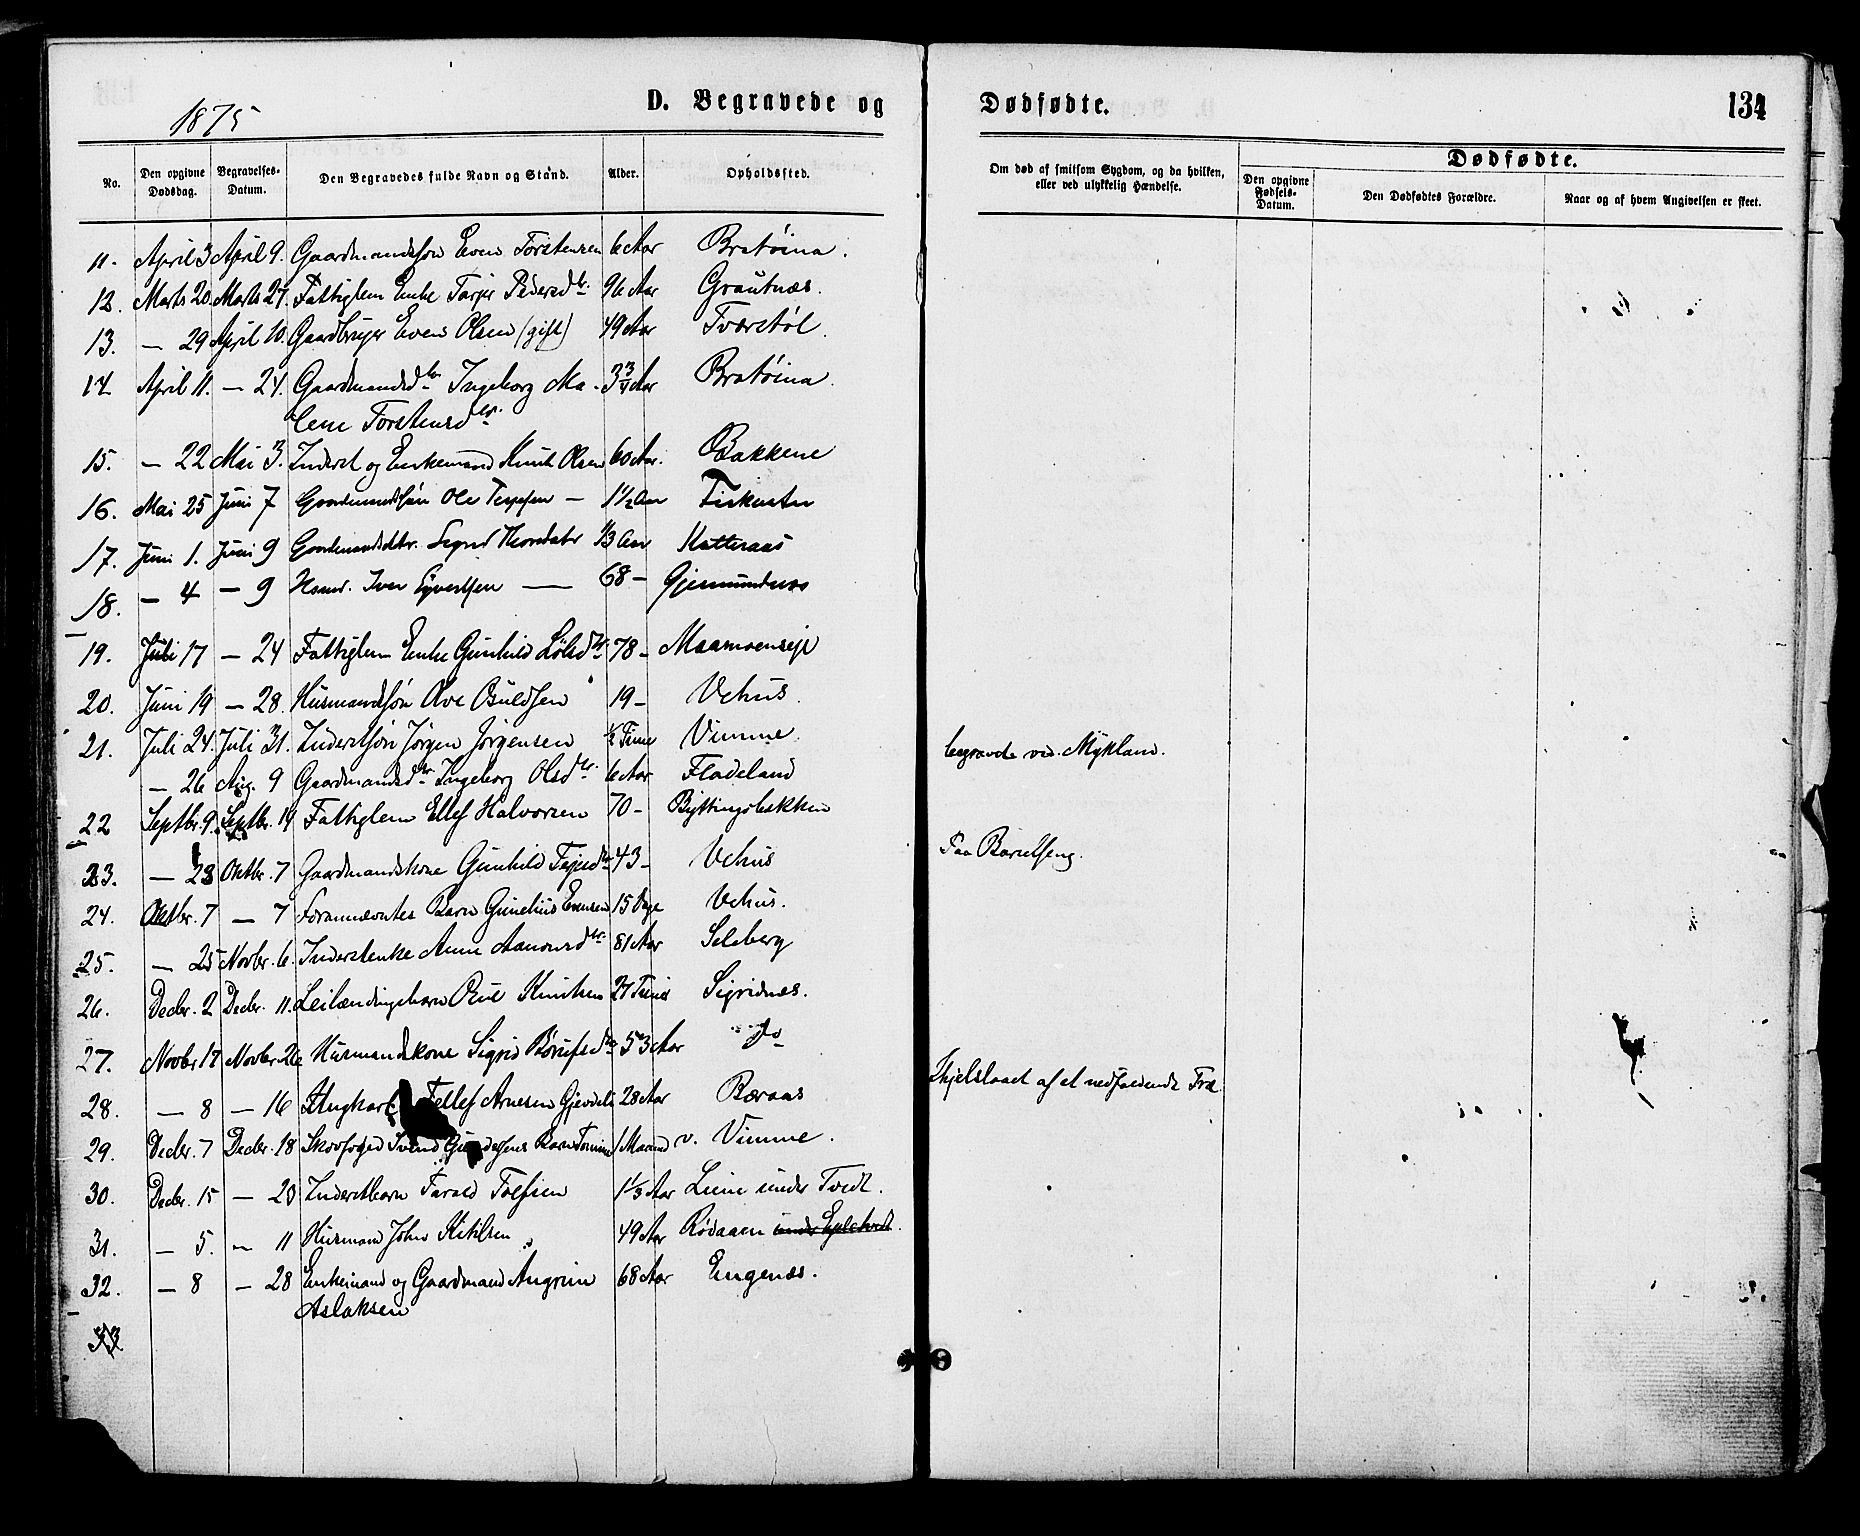 1875
D. Begravede og
Dødfødte.
134
No.
Den opgivne Dødsdag.
Begravelses-Datum.
Den Begravedes fulde Navn og Stand.
Alder.
Opholdssted.
Om død af smitsom Sygdom, og da hvilken, eller ved ulykkelig Hændelse.
Dødfødte.
Den opgivne Fødsels-Datum.
Den Dødfødtes Forældre.
Naar og af hvem Angivelsen er skeet.
11. April 3 April 9. Gaardmandssøn Even Torstensen 6 Aar Bratøina.
12. Marts 20. Marts 27. Fattiglem Enke Tarjer Pedersdtr. 96 Aar Grautnæs.
13. — 29 April 10. Gaardbruger Even Olsen (gift) 49 Aar Tværstøl.
14. April 11. — 24. Gaardmandsdtr. Ingeborg Ma- 3 3/4 Aar Bratøina.
lene Torstensdtr.
15. — 22 Mai 3. Inderst og Enkemand Knut Olsen 60 Aar. Bakkene
16. Mai 25 Juni 7 Gaardmandssøn Ole — 1½ Aar
17. Juni 1. Juni 9 Gaardmandsdtr. Sigrid 1/3 Aar Katteraas
18. — 4 — 9 Husmd. Iver — 68 — Gjermundnes
19. Juli 17 — 24 Fattiglem Enke Gunhild 78 —
20. Juni 19 — 28. Husmandssøn Ove 19 — Vehus.
21. Juli 24. Juli 31. Inderstsøn Jørgen Jørgensen ½ Time Vimme
— 26 Aug. 9 Gaardmandsdtr. Ingeborg Olsdtr. 6 Aar Fladeland begravet ved Mykland.
22 Septbr. 9. Septbr. 19 Fattiglem Ellef Halvorsen 70 — Byttingsbakken
23. — 23 Oktbr. 7 Gaardmandskone Gunhild 43 — Vehus Paa Barselseng.
24. Oktbr. 7 — 7 Forannævntes Barn Gunelius Evensen 15 Dage Vehus.
25. — 25 Novbr. 6. Inderstenke Anne Aanonsdtr. 81 Aar Selberg
26. Decbr. 2 Decbr. 11. Leilændingsbarn Knutsen 27 Timer Sigridnæs.
27. Novbr 17 Novbr. 26 Husmandskone Sigrid 53 Aar do
28. — 8 — 16 Ungkarl Tellef Arnesen Gjevdeli 28 Aar Baraas Ihjelslaaet af et nedfaldende Træ
29. Decbr. 7 Decbr. 18 Skovfoged Svend Barn 1 Maaned v. Vimme.
30. Decbr. 15 — 23 Inderstbarn Tarald Tolfsen 1 1/3 Aar Liene under Tvedt.
31. — 5. — 11 Husmand John Ketilsen 49 Aar Rødaaen under
32. — 8 — 28 Enkemand og Gaardmand Angrim 68 Aar Engenæs.
Aslaksen
33